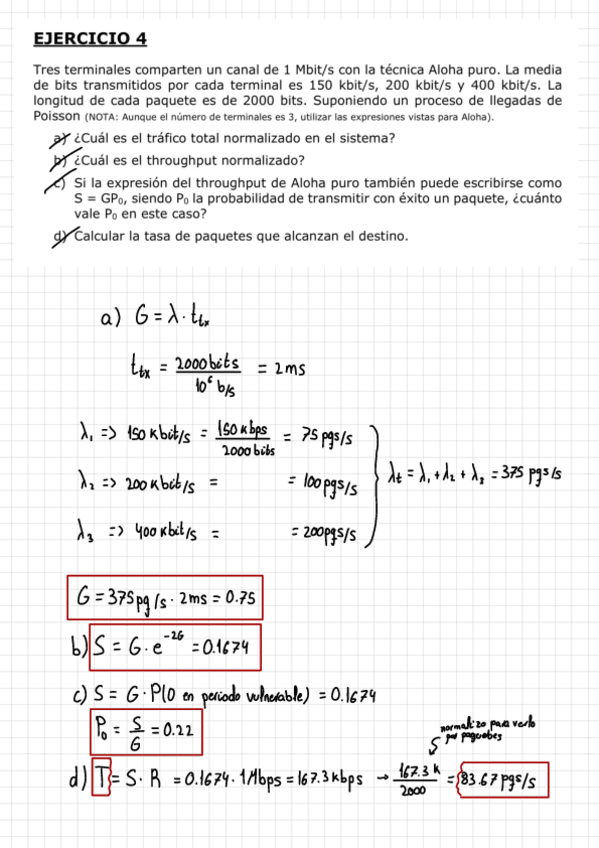 EJERCICIO 4
Tres terminales comparten un canal de 1 Mbit/s con la técnica Aloha puro. La media
de bits transmitidos por cada terminal es 150 kbit/s, 200 kbit/s y 400 kbit/s. La
longitud de cada paquete es de 2000 bits. Suponiendo un proceso de llegadas de
Poisson (NOTA: Aunque el número de terminales es 3, utilizar las expresiones vistas para Aloha).
a) ¿Cuál es el tráfico total normalizado en el sistema?
b) ¿Cuál es el throughput normalizado?
c) Si la expresión del throughput de Aloha puro también puede escribirse como
S = GP₀, siendo P₀ la probabilidad de transmitir con éxito un paquete, ¿cuánto
vale P₀ en este caso?
d) Calcular la tasa de paquetes que alcanzan el destino.
a) G = λ · t_tx
t_tx = 2000 bits / 10⁶ b/s = 2 ms
λ₁ => 150 Kbit/s = 150 Kbps / 2000 bits = 75 pqs/s
λ₂ => 200 Kbit/s = = 100 pqs/s
λ₃ => 400 Kbit/s = = 200 pqs/s
λt = λ₁ + λ₂ + λ₃ = 375 pqs/s
G = 375 pq/s · 2ms = 0.75
b) S = G · e^-2G = 0.1674
c) S = G · P(0 en periodo vulnerable) = 0.1674
P₀ = S / G = 0.22
normalizo para verlo
por paquetes
d) T = S · R = 0.1674 · 1 Mbps = 167.3 kbps → 167.3 K / 2000 = 83.67 pqs/s